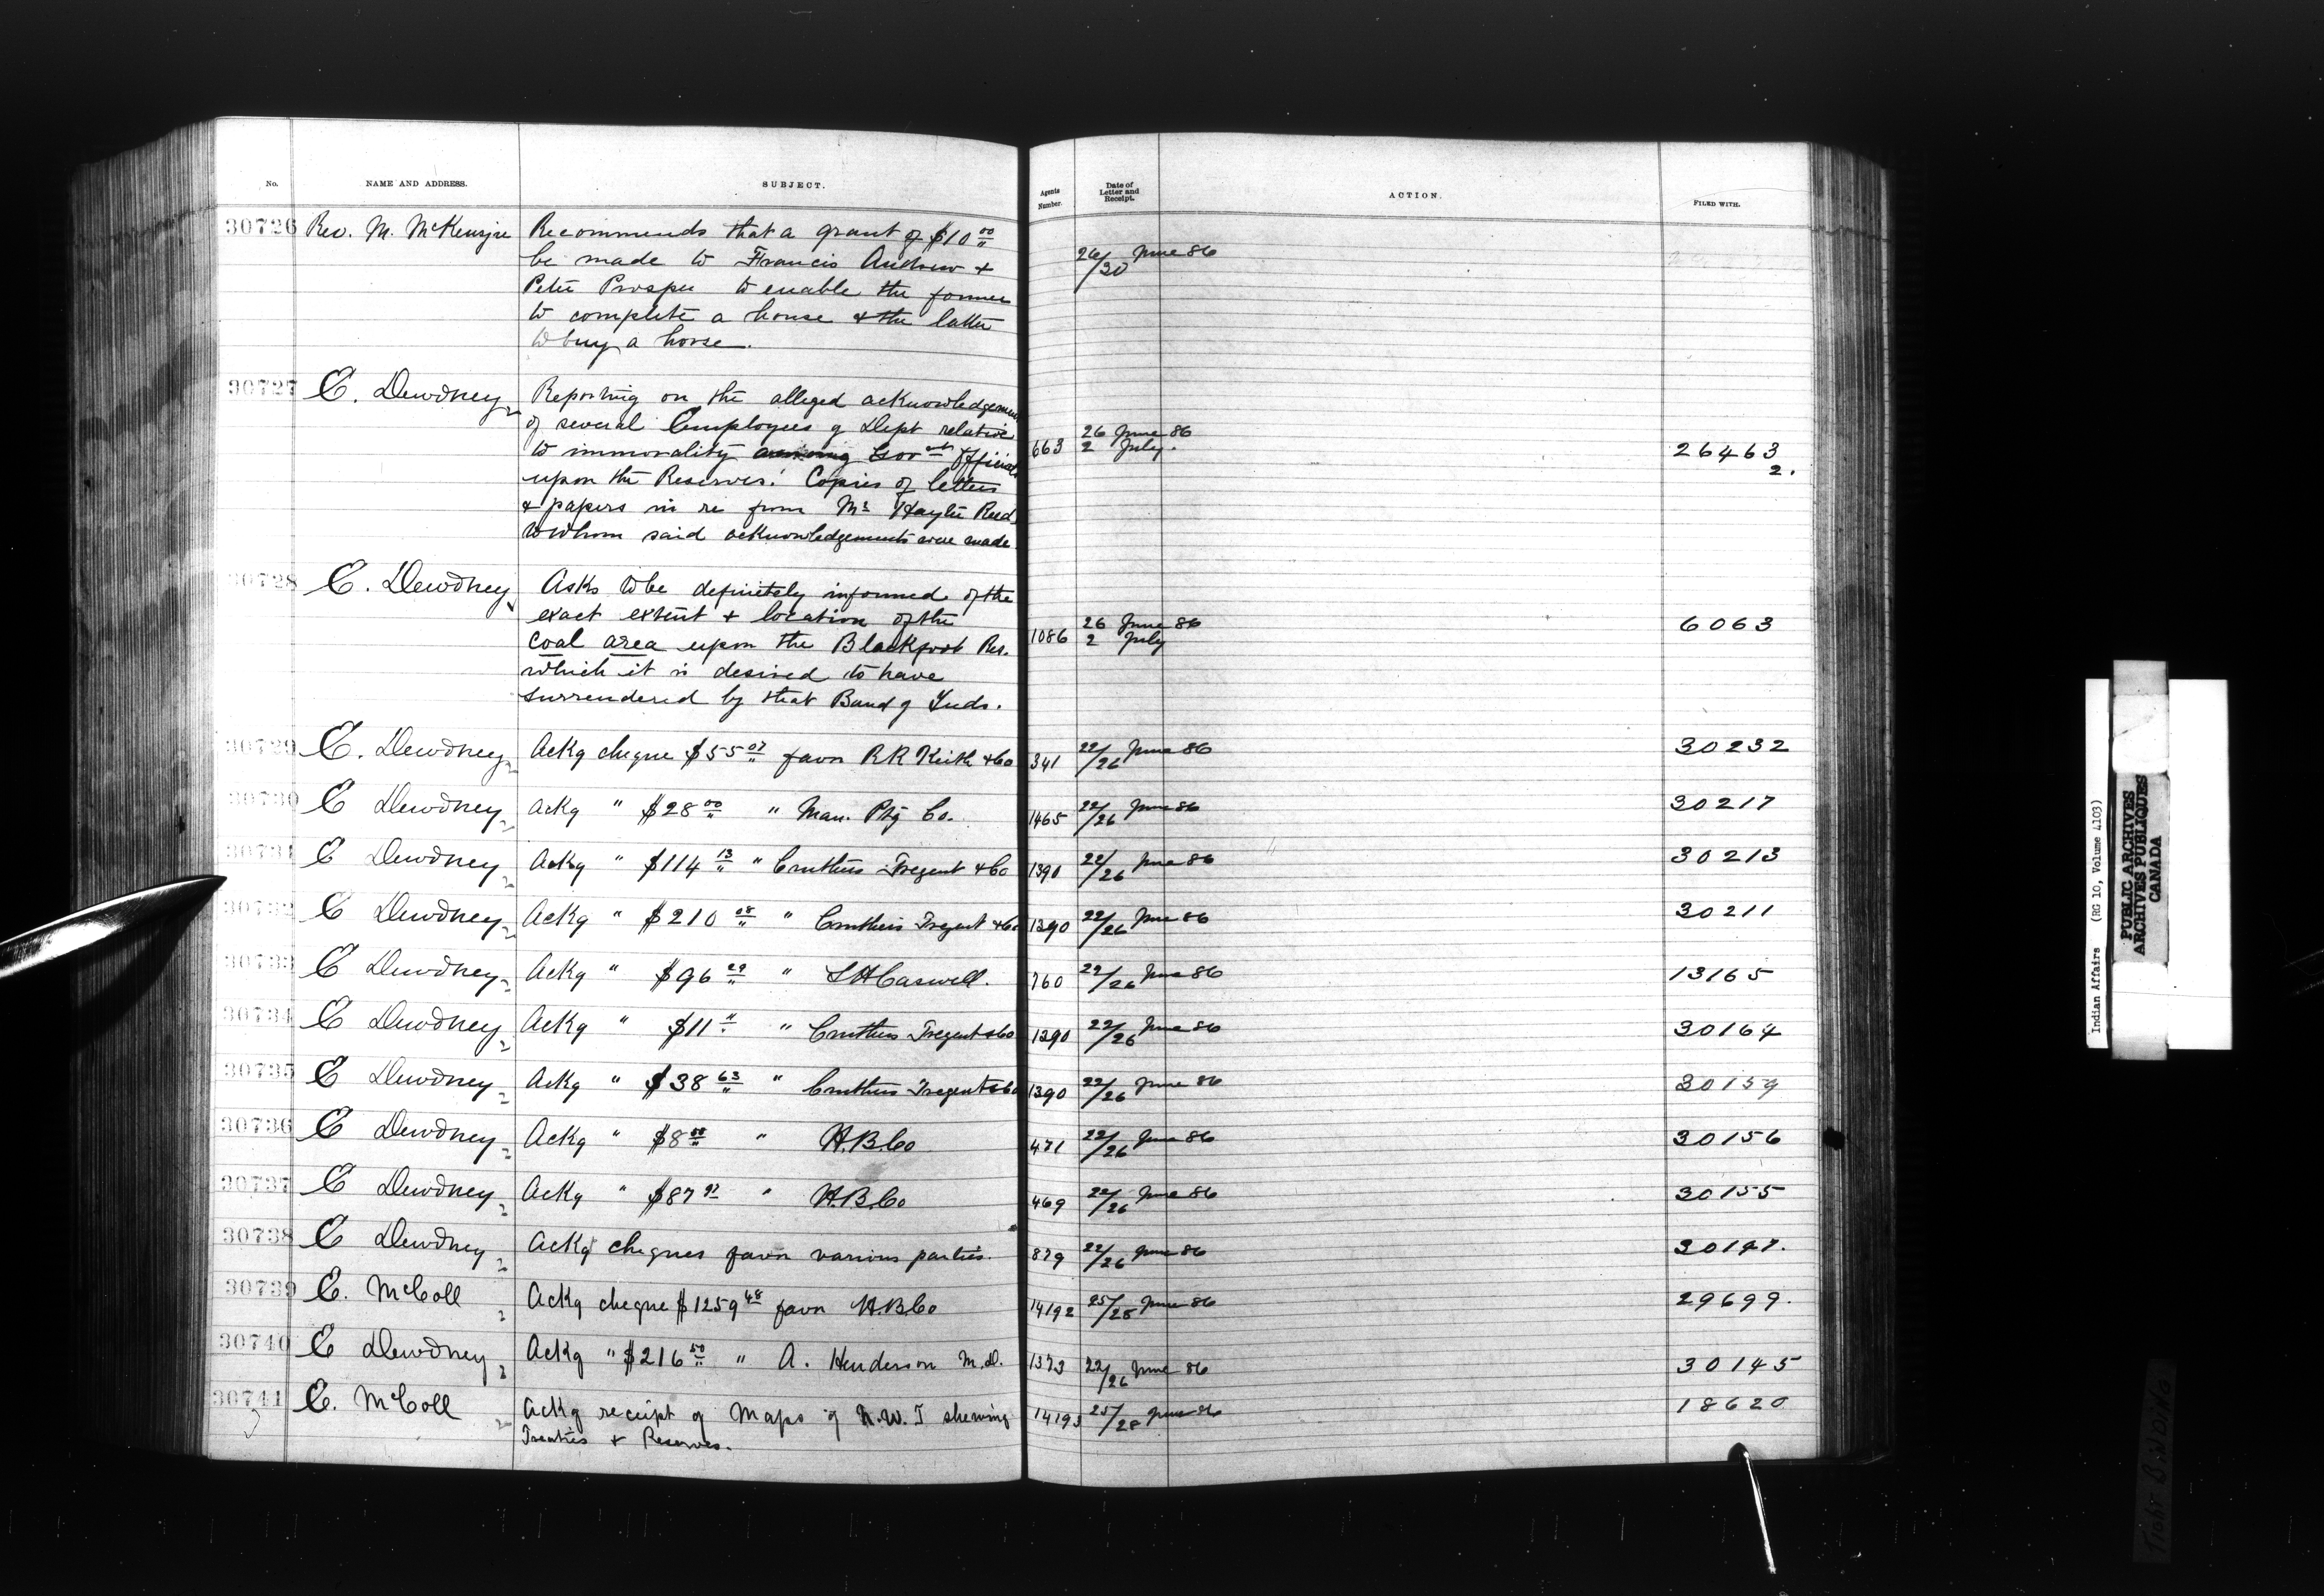 No. NAME AND ADDRESS. SUBJECT. Agents Number. Date of Letter and Receipt. ACTION. FILED WITH.
30726 Rev. M. McKenzie Recommends that a grant of $10 00/" 26/30 June 86
be made to Francis Andrew +
Peter Prosper to enable the former
to complete a house & the latter
to buy a horse.
30727 E. Dewdney Reporting on the alleged acknowledgement
of several Employees of Dept relative 26 June 86
to immorality among Govmt Officials 663 2 July. 26463
upon the Reserves. Copies of letters 2.
& papers in re from Mr Hayter Reed
to whom said acknowledgements were made
30728 E. Dewdney Asks to be definitely informed of the
exact extent + location of the 26 June 86 6063
coal area upon the Blackfoot Res. 1086 2 July
which it is desired to have
surrendered by that Band of Inds.
30729 E. Dewdney Ackg cheque $55 07/" favor R R Keith & Co 341 22/26 June 86 30232
30730 E Dewdney Ackg " $28 00/" " Man. Ptg Co. 1465 22/26 June 86 30217
30731 E Dewdney Ackg " $114 13/" " Cruthers Tregent & Co 1390 22/26 June 86 30213
30732 E Dewdney Ackg " $210 08/" " Cruthers Tregent & Co 1390 22/26 June 86 30211
30733 E Dewdney Ackg " $96 29/" " L H Caswell. 760 22/26 June 86 13165
30734 E Dewdney Ackg " $11 "/" " Cruthers Tregent & Co 1390 22/26 June 86 30164
30735 E Dewdney Ackg " $38 63/" " Cruthers Tregent & Co 1390 22/26 June 86 30159
30736 E Dewdney Ackg " $8 00/" " H.B.Co 471 22/26 June 86 30156
30737 E Dewdney Ackg " $87 97 " H.B.Co 469 22/26 June 86 30155
30738 E Dewdney Ackg cheques favor various parties. 879 22/26 June 86 30147.
30739 E. McColl Ackg cheque $1259 48 favor H.B.Co 14192 25/28 June 86 29699.
30740 E Dewdney Ackg " $216 50/" " A. Henderson M.D. 1373 22/26 June 86 30145
30741 E. McColl Ackg receipt of Maps of N.W.T shewing 14193 25/28 June 86 18620
Treaties + Reserves.
Indian Affairs (RG 10, Volume 4103)
PUBLIC ARCHIVES
ARCHIVES PUBLIQUES
CANADA